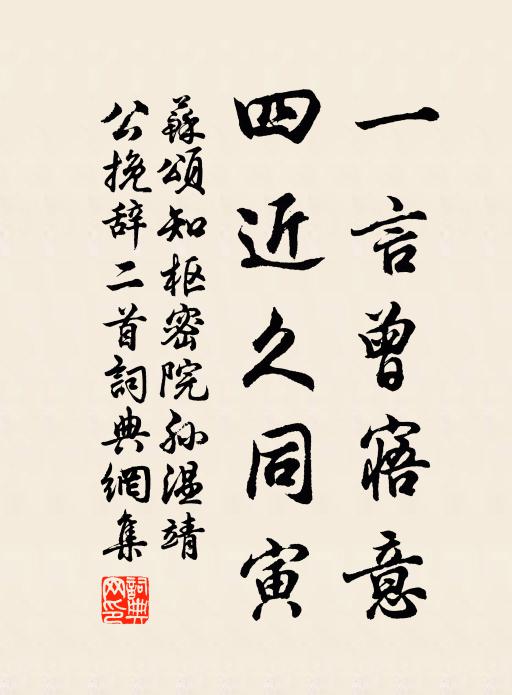 一言曾寤意
四近久同寅
蘇頌知枢密院孙温靖
公挽辞二首詞典網集
詞典网印